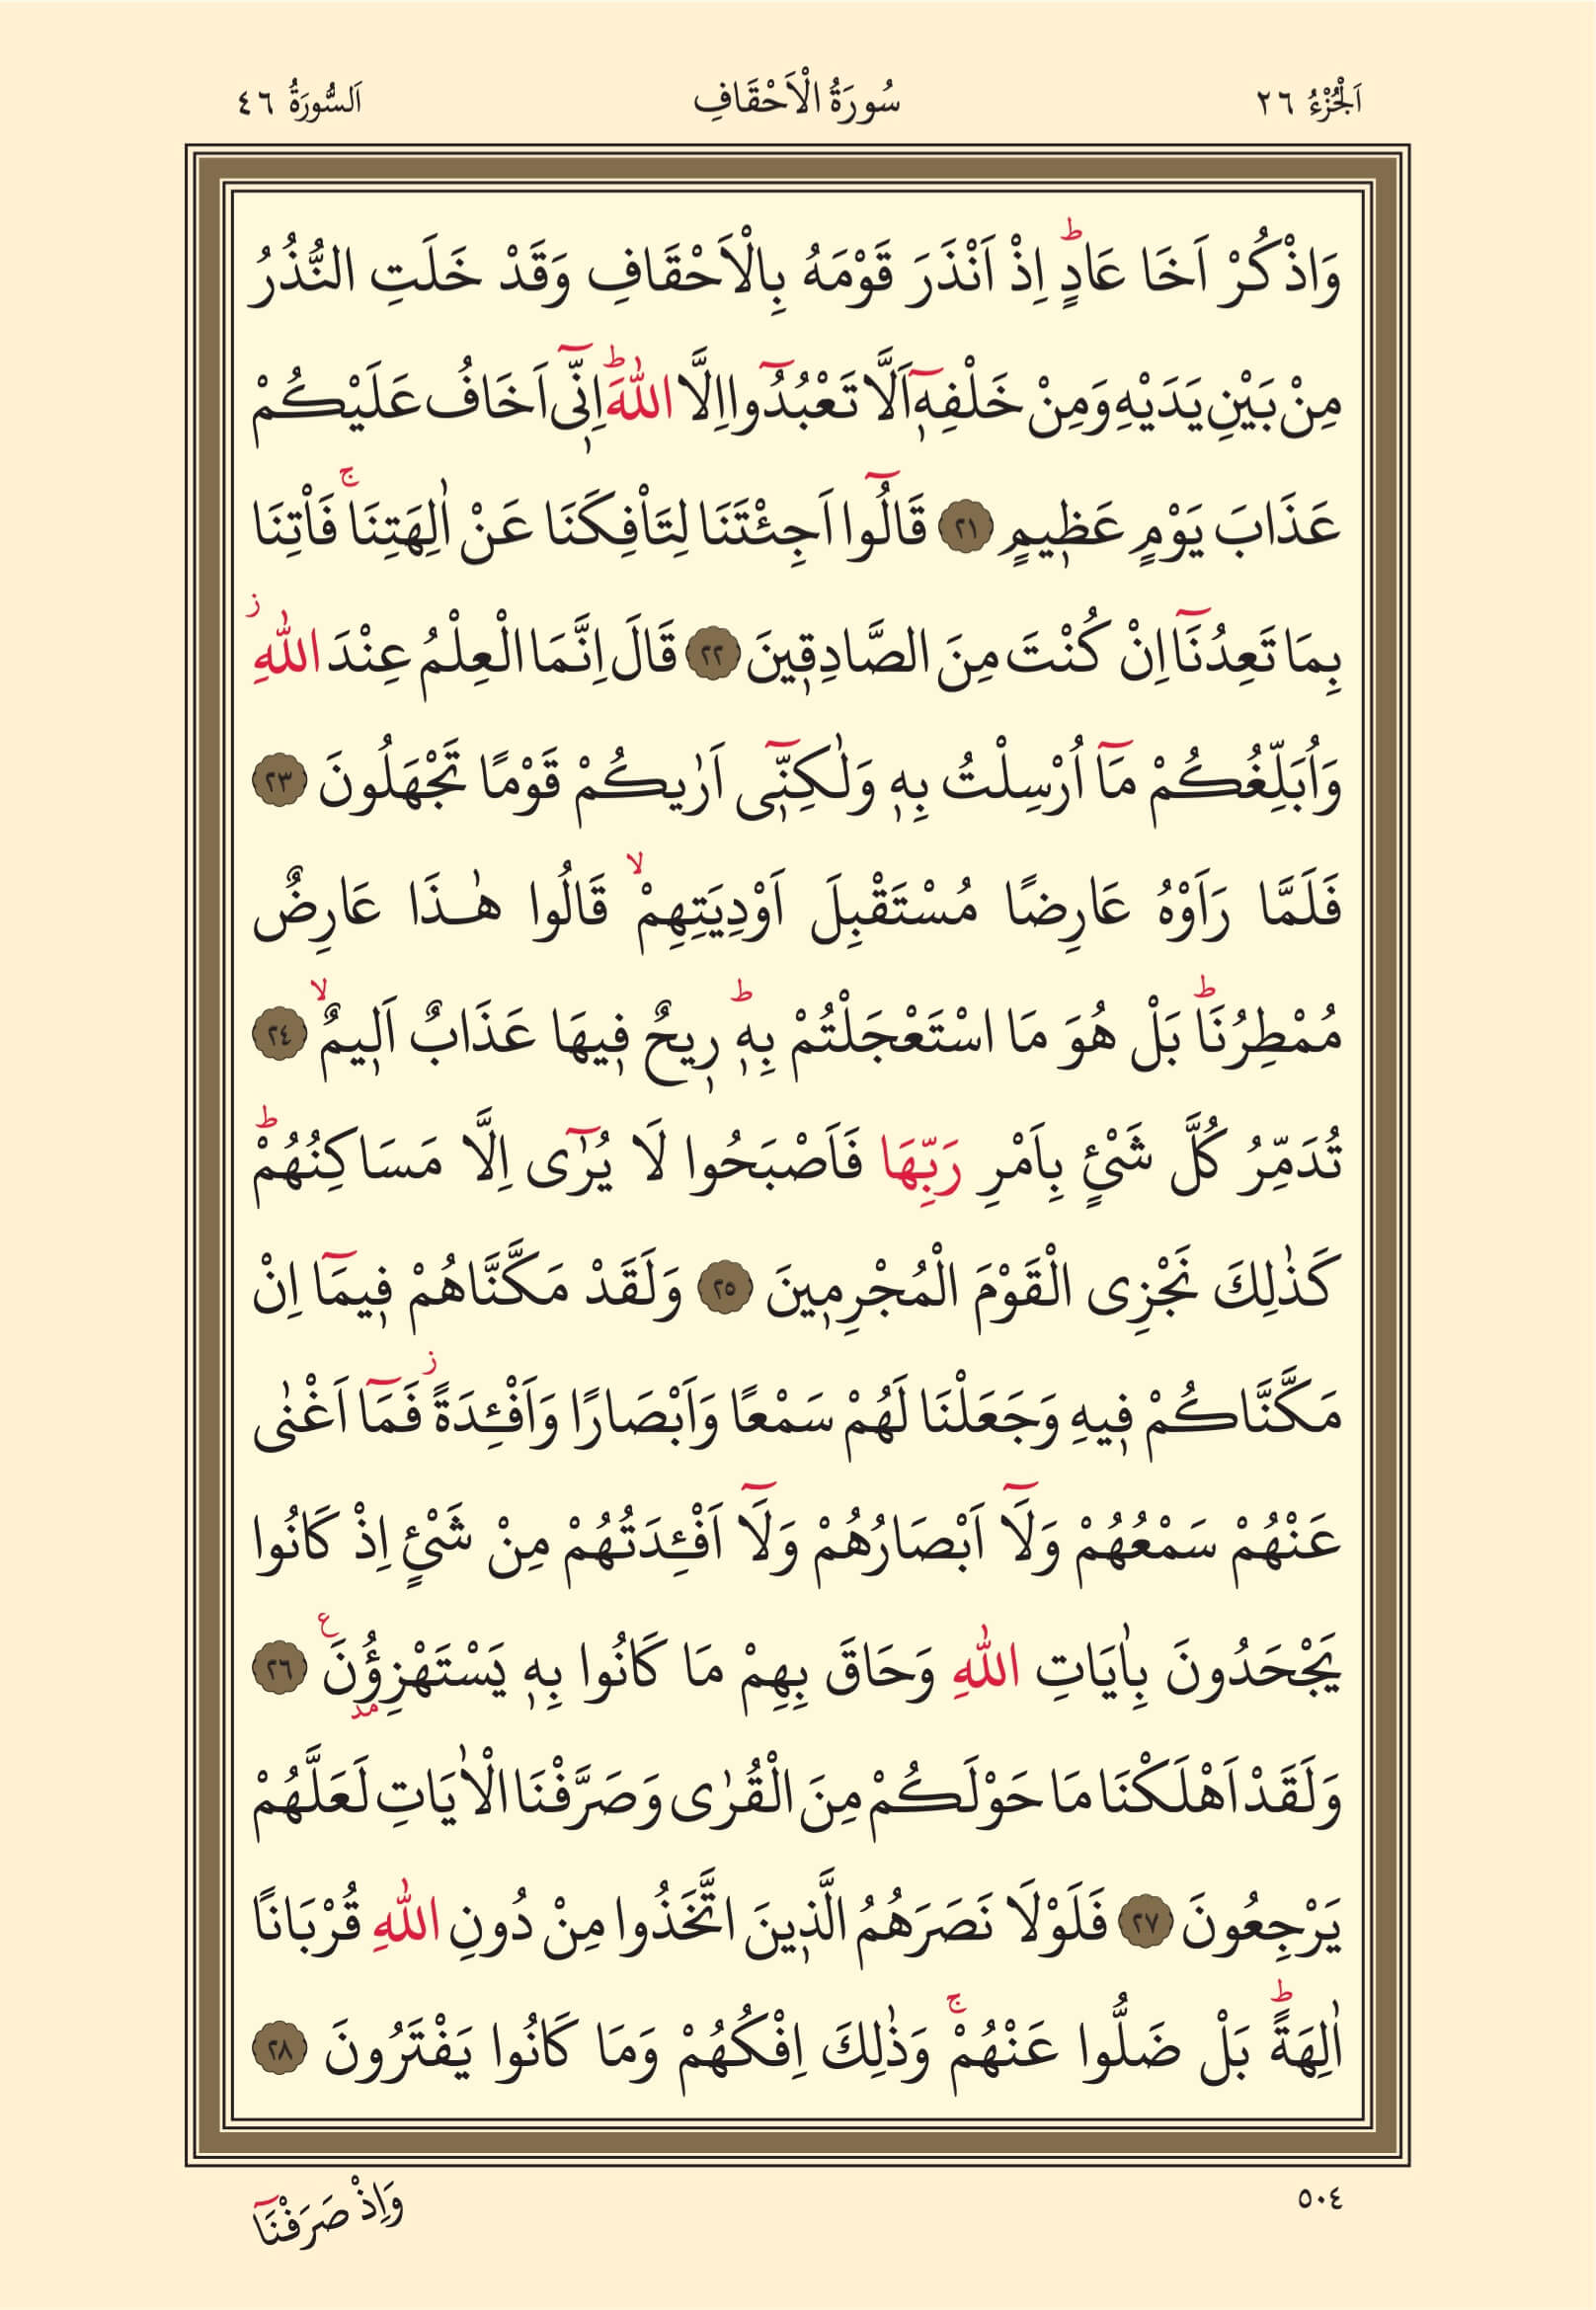 اَلْجُزْءُ ٢٦
سُورَةُ الْاَحْقَافِ
اَلسُّورَةُ ٤٦
وَاذْكُرْ اَخَا عَادٍۜ اِذْ اَنْذَرَ قَوْمَهُ بِالْاَحْقَافِ وَقَدْ خَلَتِ النُّذُرُ
مِنْ بَيْنِ يَدَيْهِ وَمِنْ خَلْفِه۪ٓ اَلَّا تَعْبُدُٓوا اِلَّا اللّٰهَۜ اِنّ۪ٓي اَخَافُ عَلَيْكُمْ
عَذَابَ يَوْمٍ عَظ۪يمٍ ﴿٢١﴾ قَالُٓوا اَجِئْتَنَا لِتَاْفِكَنَا عَنْ اٰلِهَتِنَاۚ فَاْتِنَا
بِمَا تَعِدُنَٓا اِنْ كُنْتَ مِنَ الصَّادِق۪ينَ ﴿٢٢﴾ قَالَ اِنَّمَا الْعِلْمُ عِنْدَ اللّٰهِۘ
وَاُبَلِّغُكُمْ مَٓا اُرْسِلْتُ بِه۪ وَلٰكِنّ۪ٓي اَرٰيكُمْ قَوْمًا تَجْهَلُونَ ﴿٢٣﴾
فَلَمَّا رَاَوْهُ عَارِضًا مُسْتَقْبِلَ اَوْدِيَتِهِمْۙ قَالُوا هٰذَا عَارِضٌ
مُمْطِرُنَاۜ بَلْ هُوَ مَا اسْتَعْجَلْتُمْ بِه۪ۜ ر۪يحٌ ف۪يهَا عَذَابٌ اَل۪يمٌۙ ﴿٢٤﴾
تُدَمِّرُ كُلَّ شَيْئٍ بِاَمْرِ رَبِّهَا فَاَصْبَحُوا لَا يُرٰٓى اِلَّا مَسَاكِنُهُمْۜ
كَذٰلِكَ نَجْزِي الْقَوْمَ الْمُجْرِم۪ينَ ﴿٢٥﴾ وَلَقَدْ مَكَّنَّاهُمْ ف۪يمَٓا اِنْ
مَكَّنَّاكُمْ ف۪يهِ وَجَعَلْنَا لَهُمْ سَمْعًا وَاَبْصَارًا وَاَفْـِٔدَةًۘ فَمَٓا اَغْنٰى
عَنْهُمْ سَمْعُهُمْ وَلَٓا اَبْصَارُهُمْ وَلَٓا اَفْـِٔدَتُهُمْ مِنْ شَيْئٍ اِذْ كَانُوا
يَجْحَدُونَ بِاٰيَاتِ اللّٰهِ وَحَاقَ بِهِمْ مَا كَانُوا بِه۪ يَسْتَهْزِؤُ۫نَ۟ ﴿٢٦﴾
وَلَقَدْ اَهْلَكْنَا مَا حَوْلَكُمْ مِنَ الْقُرٰى وَصَرَّفْنَا الْاٰيَاتِ لَعَلَّهُمْ
يَرْجِعُونَ ﴿٢٧﴾ فَلَوْلَا نَصَرَهُمُ الَّذ۪ينَ اتَّخَذُوا مِنْ دُونِ اللّٰهِ قُرْبَانًا
اٰلِهَةًۜ بَلْ ضَلُّوا عَنْهُمْۚ وَذٰلِكَ اِفْكُهُمْ وَمَا كَانُوا يَفْتَرُونَ ﴿٢٨﴾
٥٠٤
وَاِذْ صَرَفْنَٓا